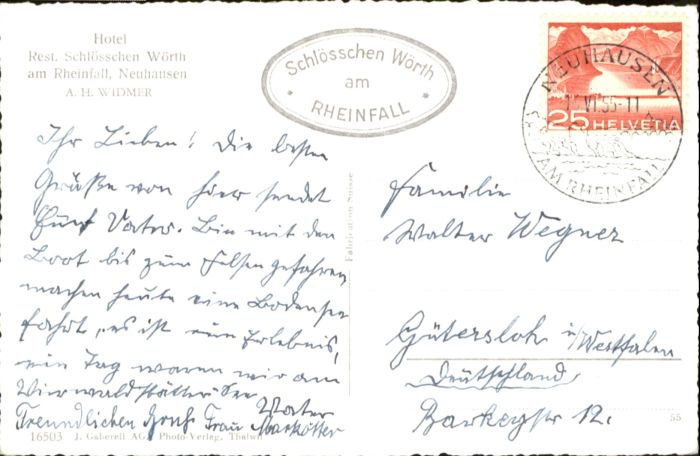 Hotel
Rest. Schlösschen Wörth
am Rheinfall, Neuhausen
A. H. WIDMER
Schlösschen Wörth
am
RHEINFALL
NEUHAUSEN
VI 55-11
AM RHEINFALL
25 HELVETIA
Ihr Lieben! Die besten
Grüße von hier sendet
Vater. Bin mit den
Boot bis zum Felsen gefahren
machen heute eine Bodensee
fahrt, es ist ein Erlebnis,
ein Tag waren wir am
Vierwaldstätter See
Vater
Freundlichen Gruß Frau Markötter
Familie
Walter Wegner
Gütersloh i/Westfalen
Deutschland
Barkeystr 12.
Fabrication Suisse
16503 J. Gaberell AG., Photo-Verlag, Thalwil
55